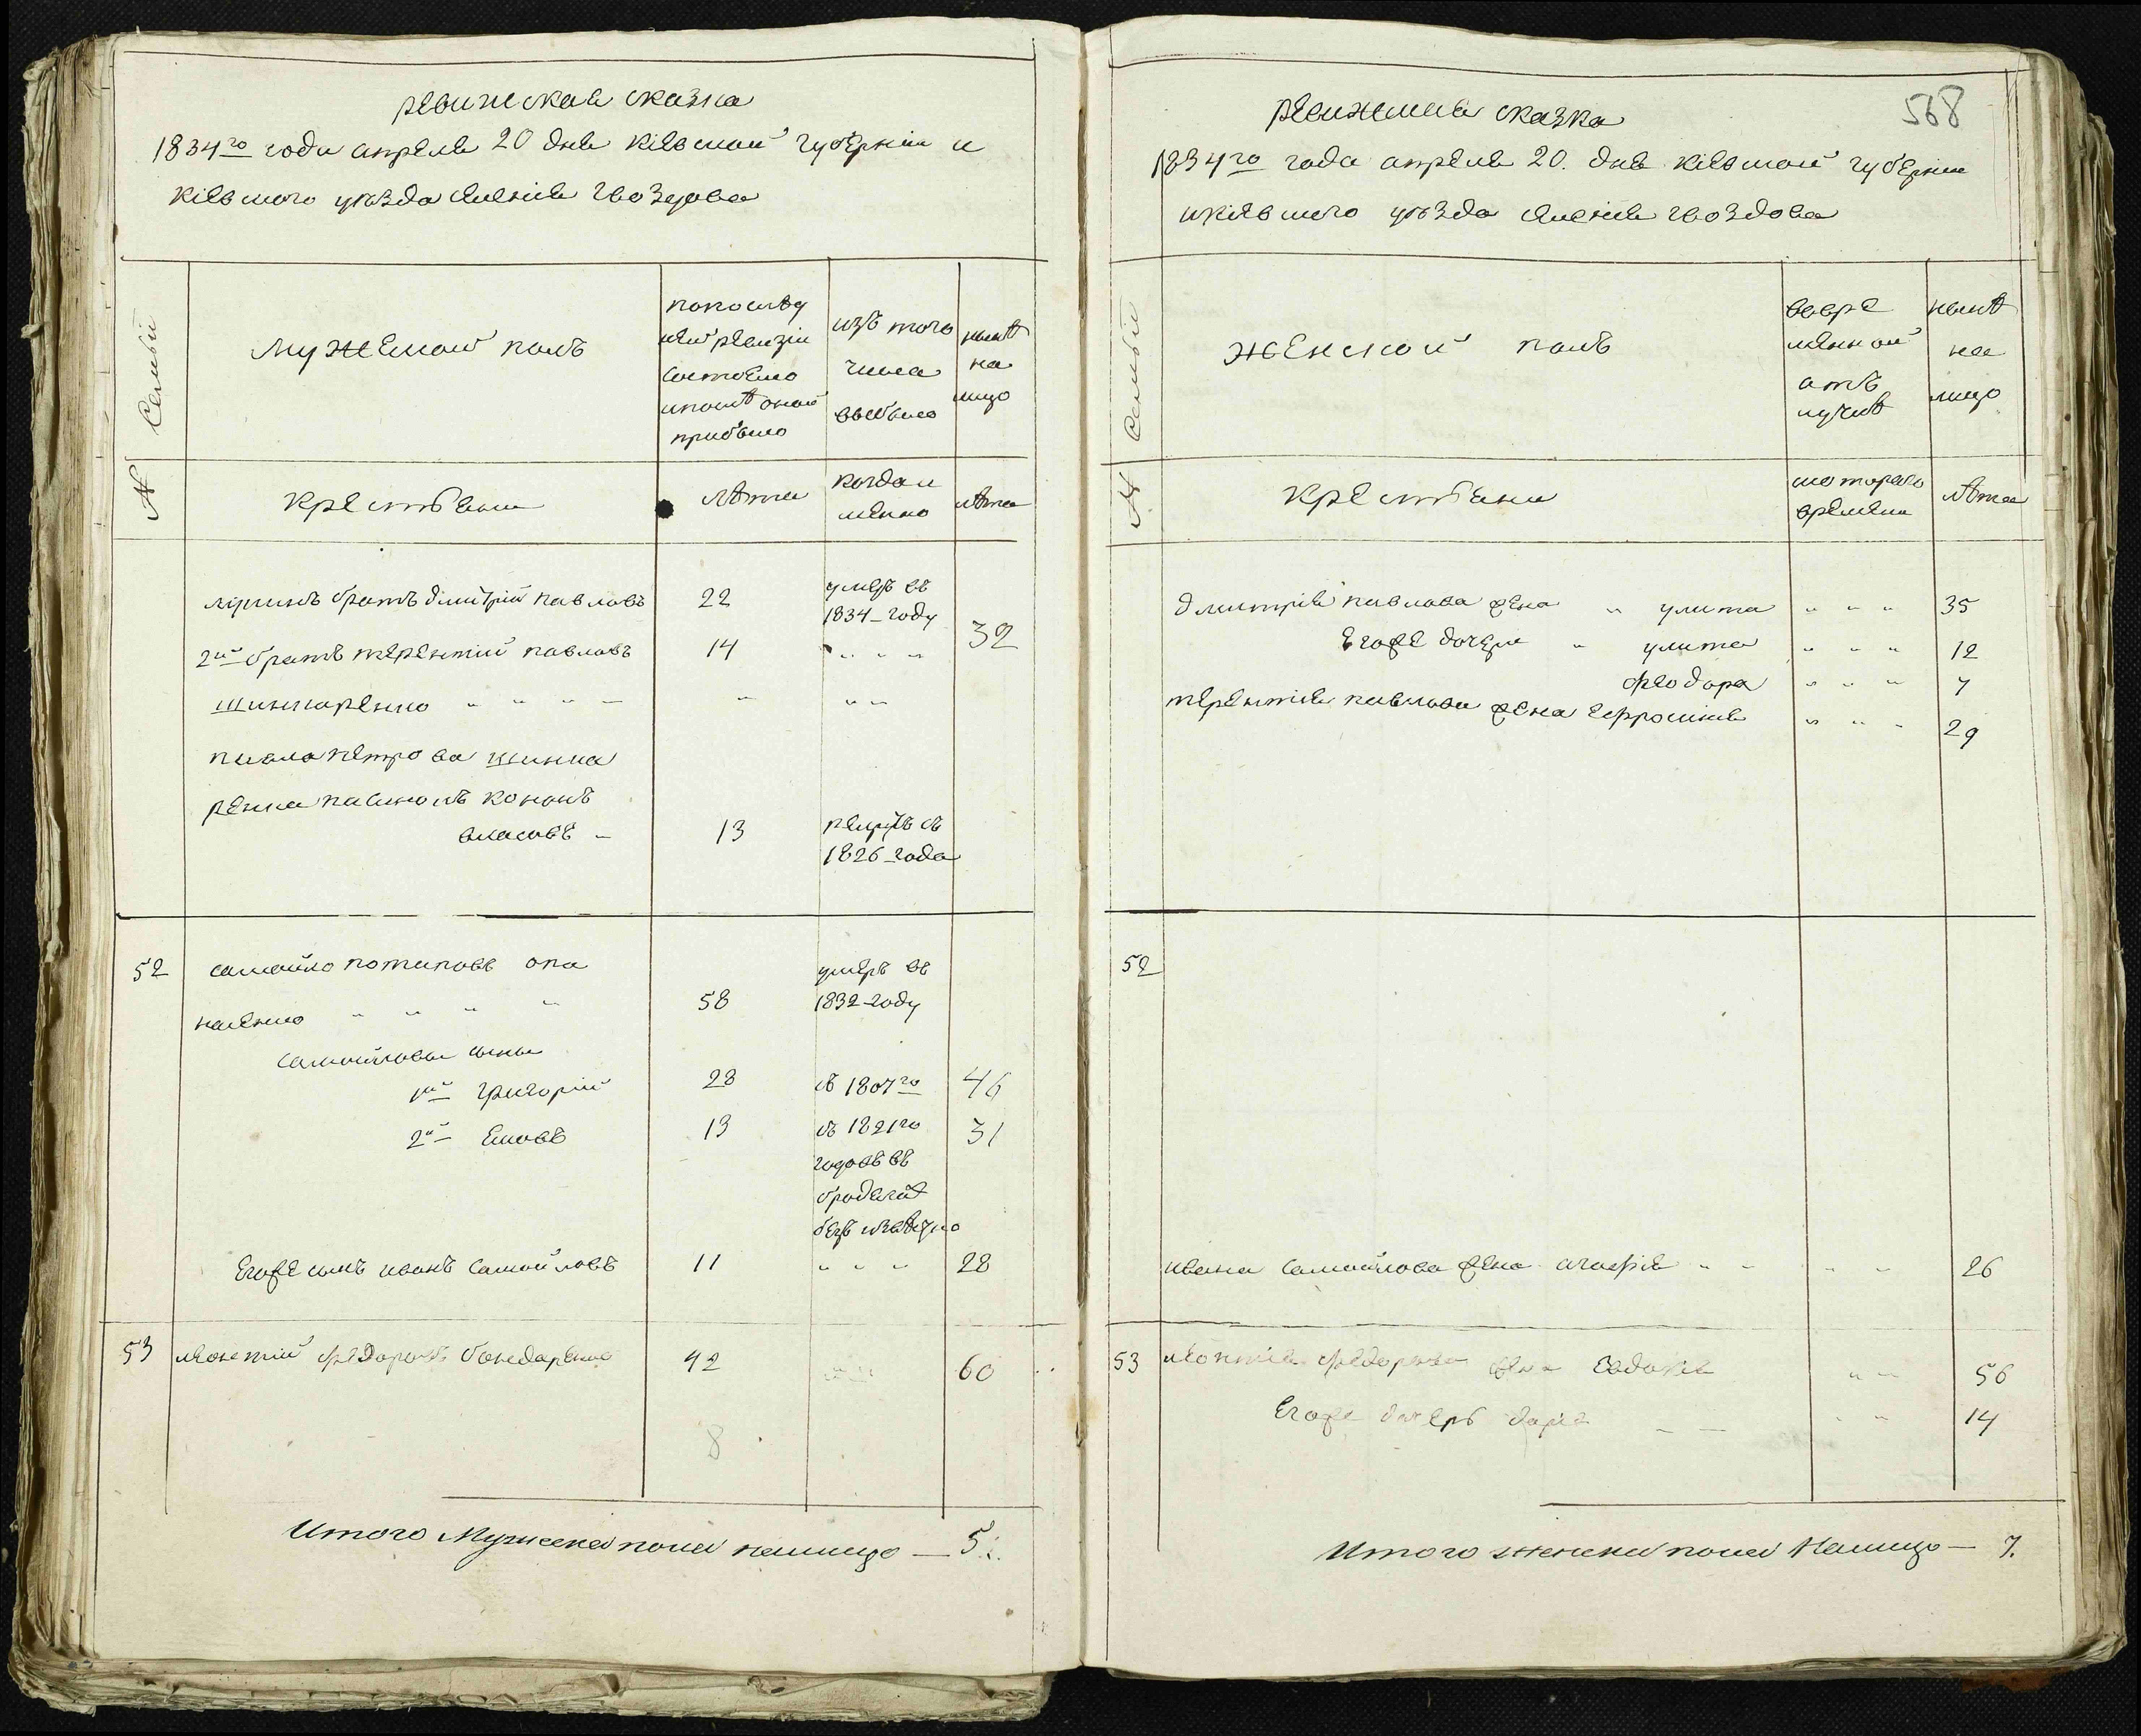 ревижская сказка
1834го года апреля 20 дня Кіевской губерніи и
Кіевского уезда селенія Гвоздова
№ Семьи
Мужеской полъ
по последу
ней ревизіи
состояло
и после оной
прибыло
изъ того
числа
выбыло
ныне
на
лицо
Крестьяни
лета
когда и
менно
лета
братъ дмитрій павловъ 22 умеръ въ
1834 году
2й братъ терентий павловъ 14 " " " 32
шинкаренко " " " — " " "
павла петрова шинка
ренка пасинокъ кононъ
власовъ - 13 рекрутъ съ
1826 года
52 самойло потаповъ опа
насенко " " " " 58 умеръ въ
1832 году
Самойловы сыны
1й григорій 28 съ 1807го 46
2й Яковъ 13 съ 1821го 31
годовъ въ
бродягахъ
безъ известно
Егоже сынъ иванъ Самойловъ 11 " " " 28
53 леонтий федоровъ бондаренко 42 " " " 60
8
Итого Мужеска пола налицо — 5.
568
ревижская сказка
1834го года апреля 20. дня Кіевской губерніи
и Кіевского уезда селенія гвоздова
№ Семьи
женской полъ
во вре
менной
отъ
лучке
ныне
на
лицо
Крестьяни
с которого
времени
лета
дмитрія павлова жена " улита " " " 35
Егоже дочери " улита " " " 12
феодора " " " 7
терентія павлова жена Ефросинія " " " 29
52
ивана Самойлова жена агафія " " " " 26
53 леонтія федорова жена Евдокія " " 56
Егоже дочерь дарія — — " " 14
Итого женска пола Налицо — 7.